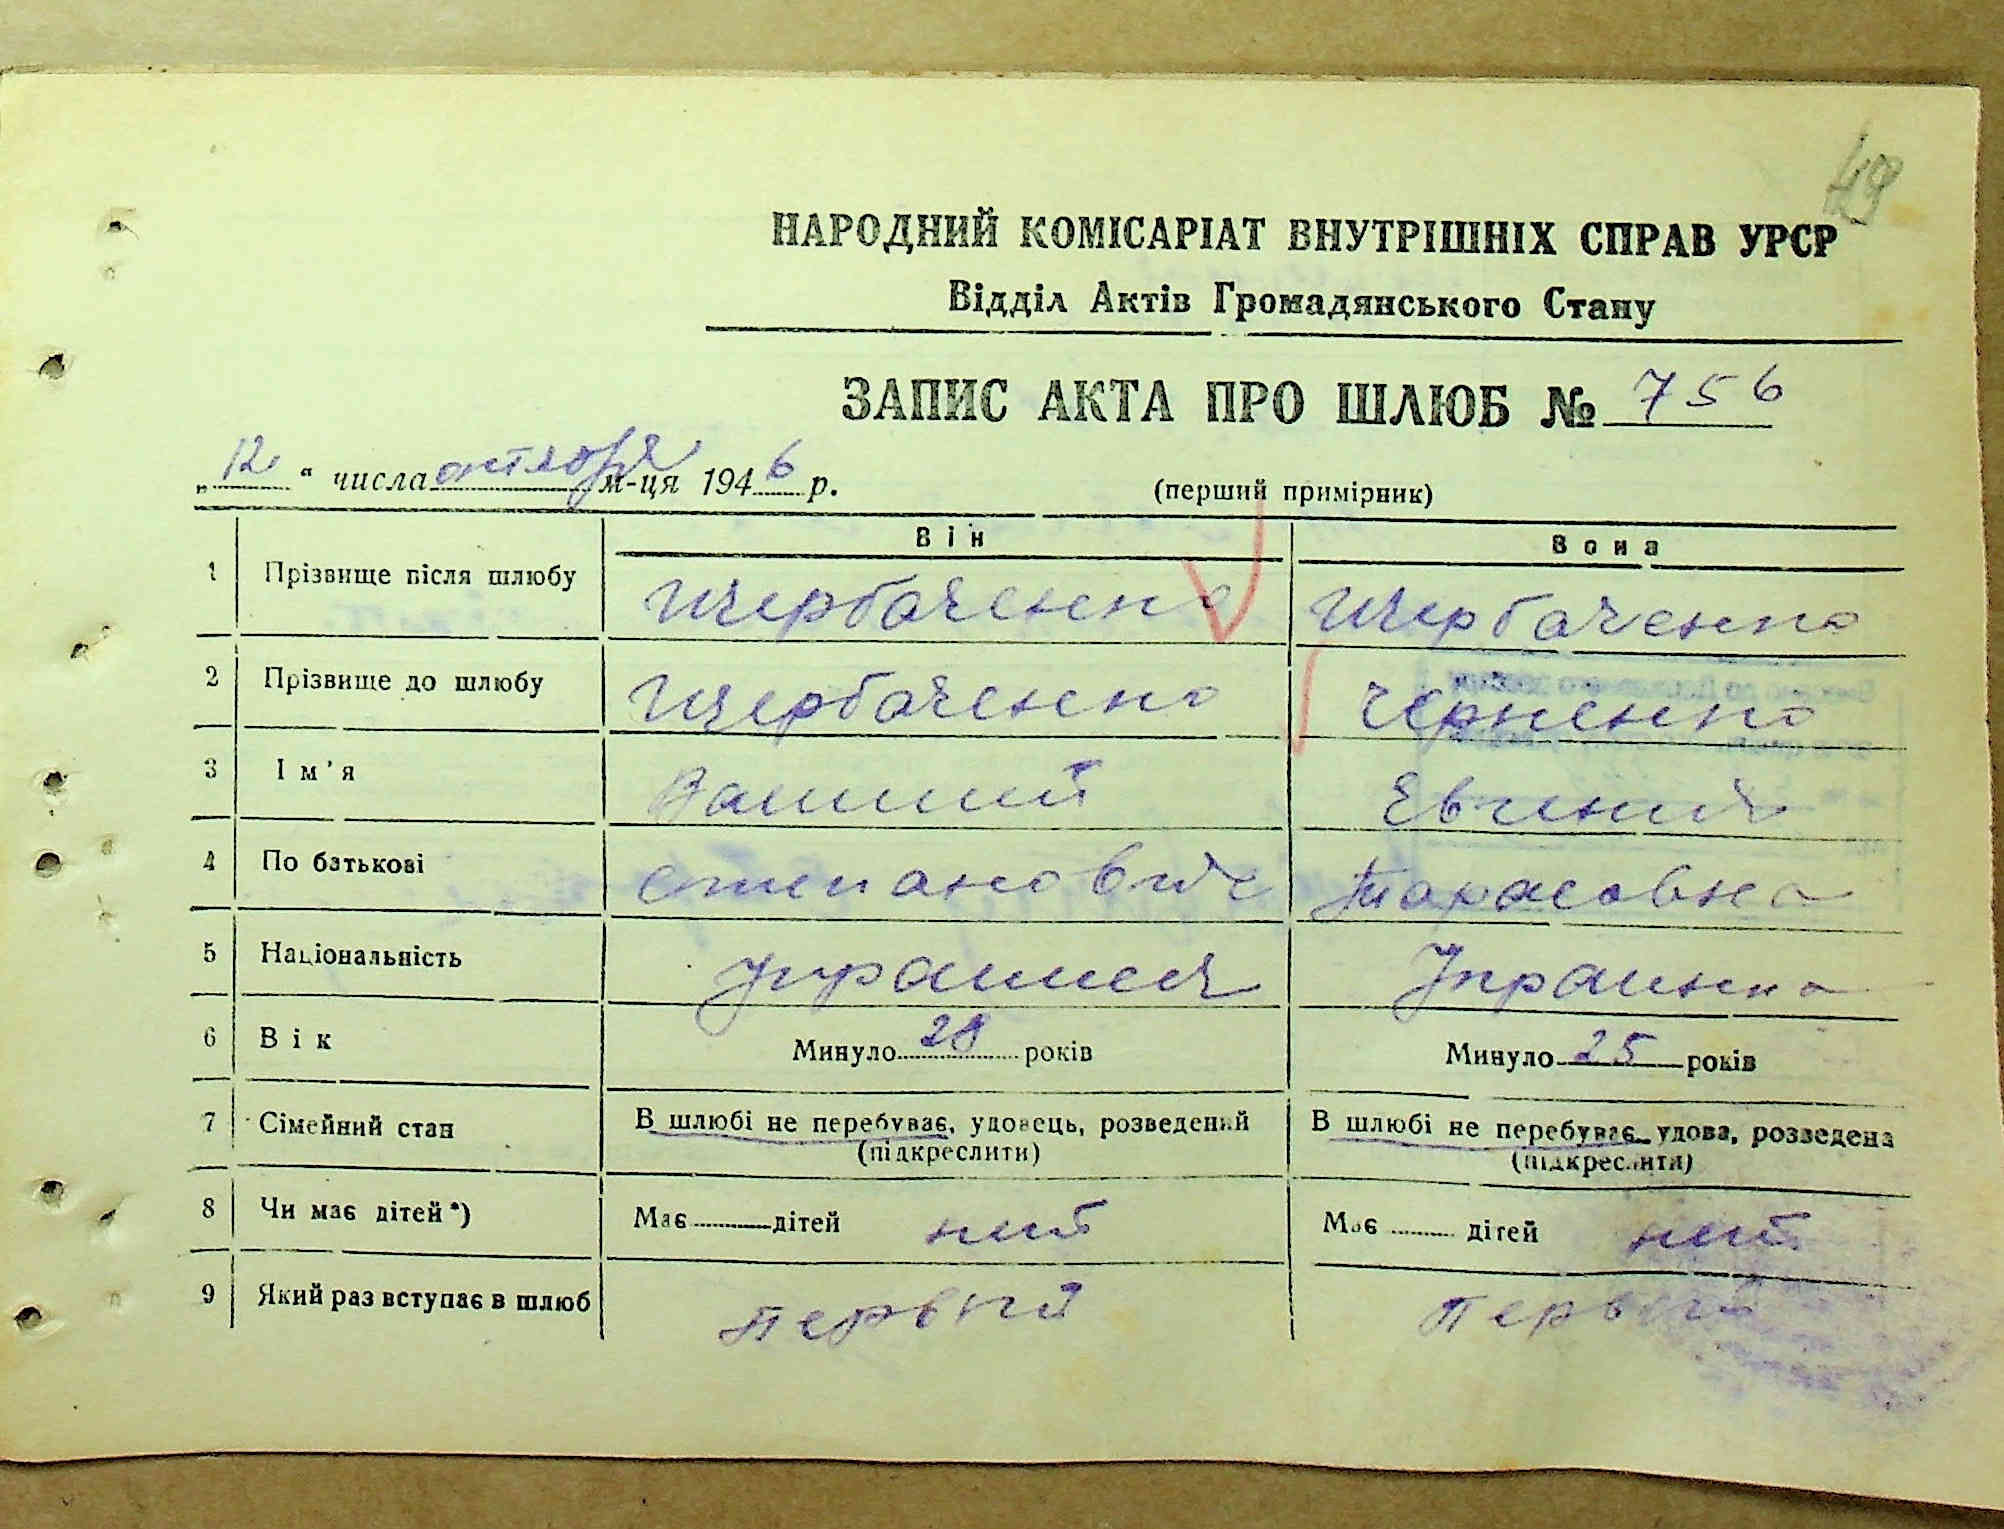 49
НАРОДНИЙ КОМІСАРІАТ ВНУТРІШНІХ СПРАВ УРСР
Відділ Актів Громадянського Стану
ЗАПИС АКТА ПРО ШЛЮБ № 756
„12“ числа октября м-ця 1946 р.
(перший примірник)
Він Вона
1 Прізвище після шлюбу Щербаченко Щербаченко
2 Прізвище до шлюбу Щербаченко Черненко
3 Ім'я Василий Евгения
4 По батькові Степанович Тарасовна
5 Національність Украинец Украинка
6 Вік Минуло 28 років Минуло 25 років
7 Сімейний стан В шлюбі не перебуває, удовець, розведений В шлюбі не перебуває, удова, розведена
(підкреслити) (підкреслити)
8 Чи має дітей*) Має дітей нет Має дітей нет
9 Який раз вступає в шлюб первый первый